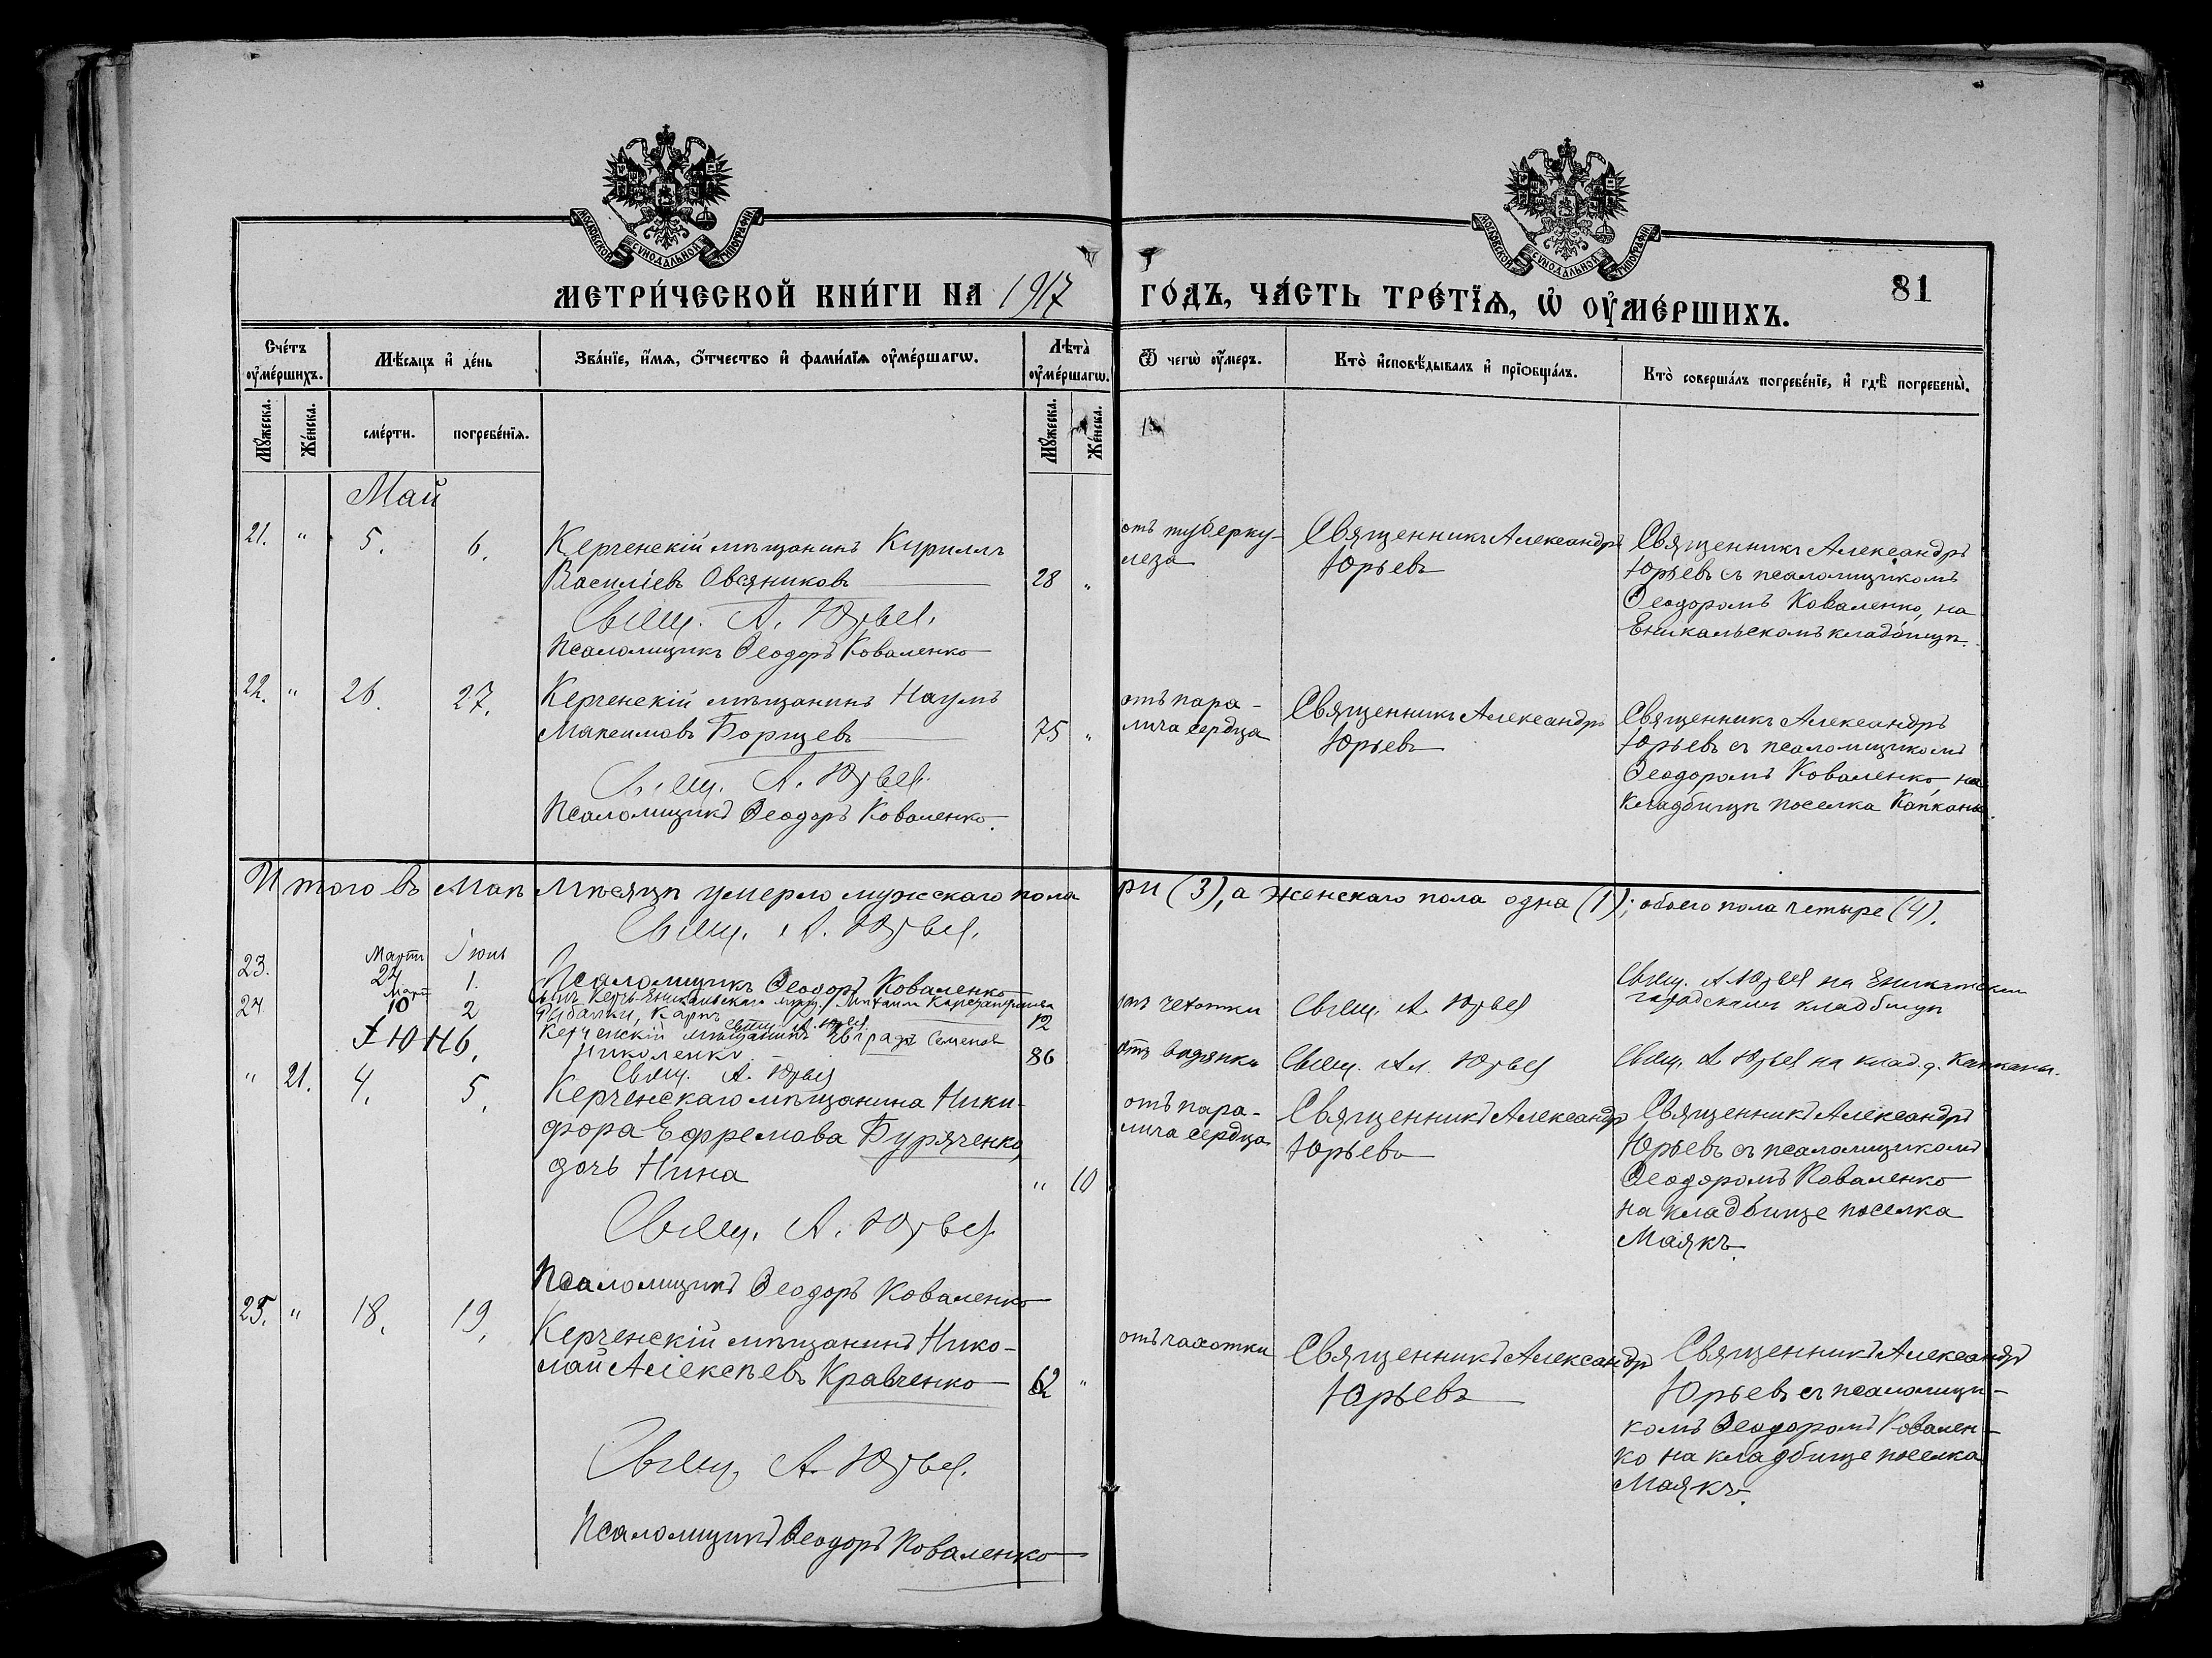 МОСКОВСКОЙ СѴНОДАЛЬНОЙ ТИПОГРАФІИ
МОСКОВСКОЙ СѴНОДАЛЬНОЙ ТИПОГРАФІИ
МЕТРИ́ЧЕСКОЙ КНИ́ГИ НА 1917 ГО́ДЪ, ЧА́СТЬ ТРЕ́ТЇѦ, Ѡ҆ ОУ҆МЕ́РШИХЪ.
81
Сче́тъ оу҆ме́ршихъ.
Мѣ́сѧцъ и҆ де́нь
Зва́нїе, и҆́мѧ, ѻ҆́тчество и҆ фами́лїѧ оу҆ме́ршагѡ.
Лѣ́та оу҆ме́ршагѡ.
Ѿ чегѡ̀ оу҆́меръ.
Кто̀ и҆сповѣ́дывалъ и҆ прїѡбща́лъ.
Кто̀ соверша́лъ погребе́нїе, и҆ гдѣ̀ погребены̀.
Мꙋ́жеска.
Же́нска.
сме́рти.
погребе́нїѧ.
Мꙋ́жеска.
Же́нска.
Май
21. " 5. 6. Керченскій мѣщанинъ Кириллъ
Василіевъ Овсяниковъ 28 "
Свящ. А. Юрьев.
Псаломщикъ Ѳеодоръ Коваленко
отъ туберку-
леза
Священникъ Александръ
Юрьевъ
Священникъ Александръ
Юрьевъ съ псаломщикомъ
Ѳеодоромъ Коваленко, на
Еникальскомъ кладбищѣ.
22. " 26. 27. Керченскій мѣщанинъ Наумъ
Максимовъ Борщевъ 75 "
Свящ. А. Юрьев.
Псаломщикъ Ѳеодоръ Коваленко.
отъ пара-
лича сердца
Священникъ Александръ
Юрьевъ
Священникъ Александръ
Юрьевъ съ псаломщикомъ
Ѳеодоромъ Коваленко на
кладбищѣ поселка Капканы.
Итого въ Маѣ мѣсяцѣ умерло мужскаго пола ри (3), а женскаго пола одна (1); обоего пола четыре (4).
Свящ. А. Юрьев.
Псаломщикъ Ѳеодоръ Коваленко
23. Мартъ 24. Іюнь 1. Сынъ Керчь-Еникальскаго мѣщ. Михаила
Рыбалки, Карпъ 12
Свящ. А. Юрьев
отъ чехотки
Свящ. А. Юрьев
Свящ. А Юрьев на Еникальском
городским кладбищѣ
24 Март 10 2 Керченскій мѣщанинъ Евградъ Семенов
Николенко 86
Свящ. А. Юрьев
отъ водянки
Свящ. Ал. Юрьев
Свящ. А Юрьев на клад. д. Капканы.
ІЮНЬ.
" 21. 4. 5. Керченскаго мѣщанина Ники-
фора Ефремова Буряченко,
дочь Нина " 10
Свящ. А. Юрьев.
Псаломщикъ Ѳеодоръ Коваленко
отъ пара-
лича сердца
Священникъ Александр
Юрьевъ
Священникъ Александръ
Юрьевъ съ псаломщикомъ
Ѳеодоромъ Коваленко
на кладбище поселка
Маякъ.
25. " 18. 19. Керченскій мѣщанинъ Нико-
лай Алексѣевъ Кравченко 62 "
Свящ. А. Юрьев.
Псаломщикъ Ѳеодоръ Коваленко
отъ чахотки
Священникъ Александръ
Юрьевъ
Священникъ Александръ
Юрьевъ съ псаломщи-
комъ Ѳеодоромъ Ковален-
ко на кладбище поселка
Маякъ.